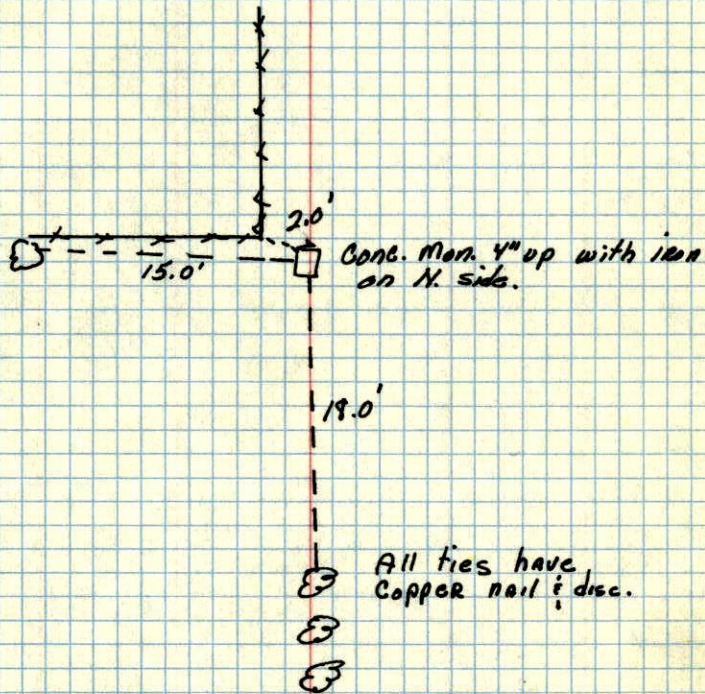 2.0'
Conc. Mon. 4" up with iron
on N. side.
15.0'
18.0'
All ties have
Copper nail & disc.